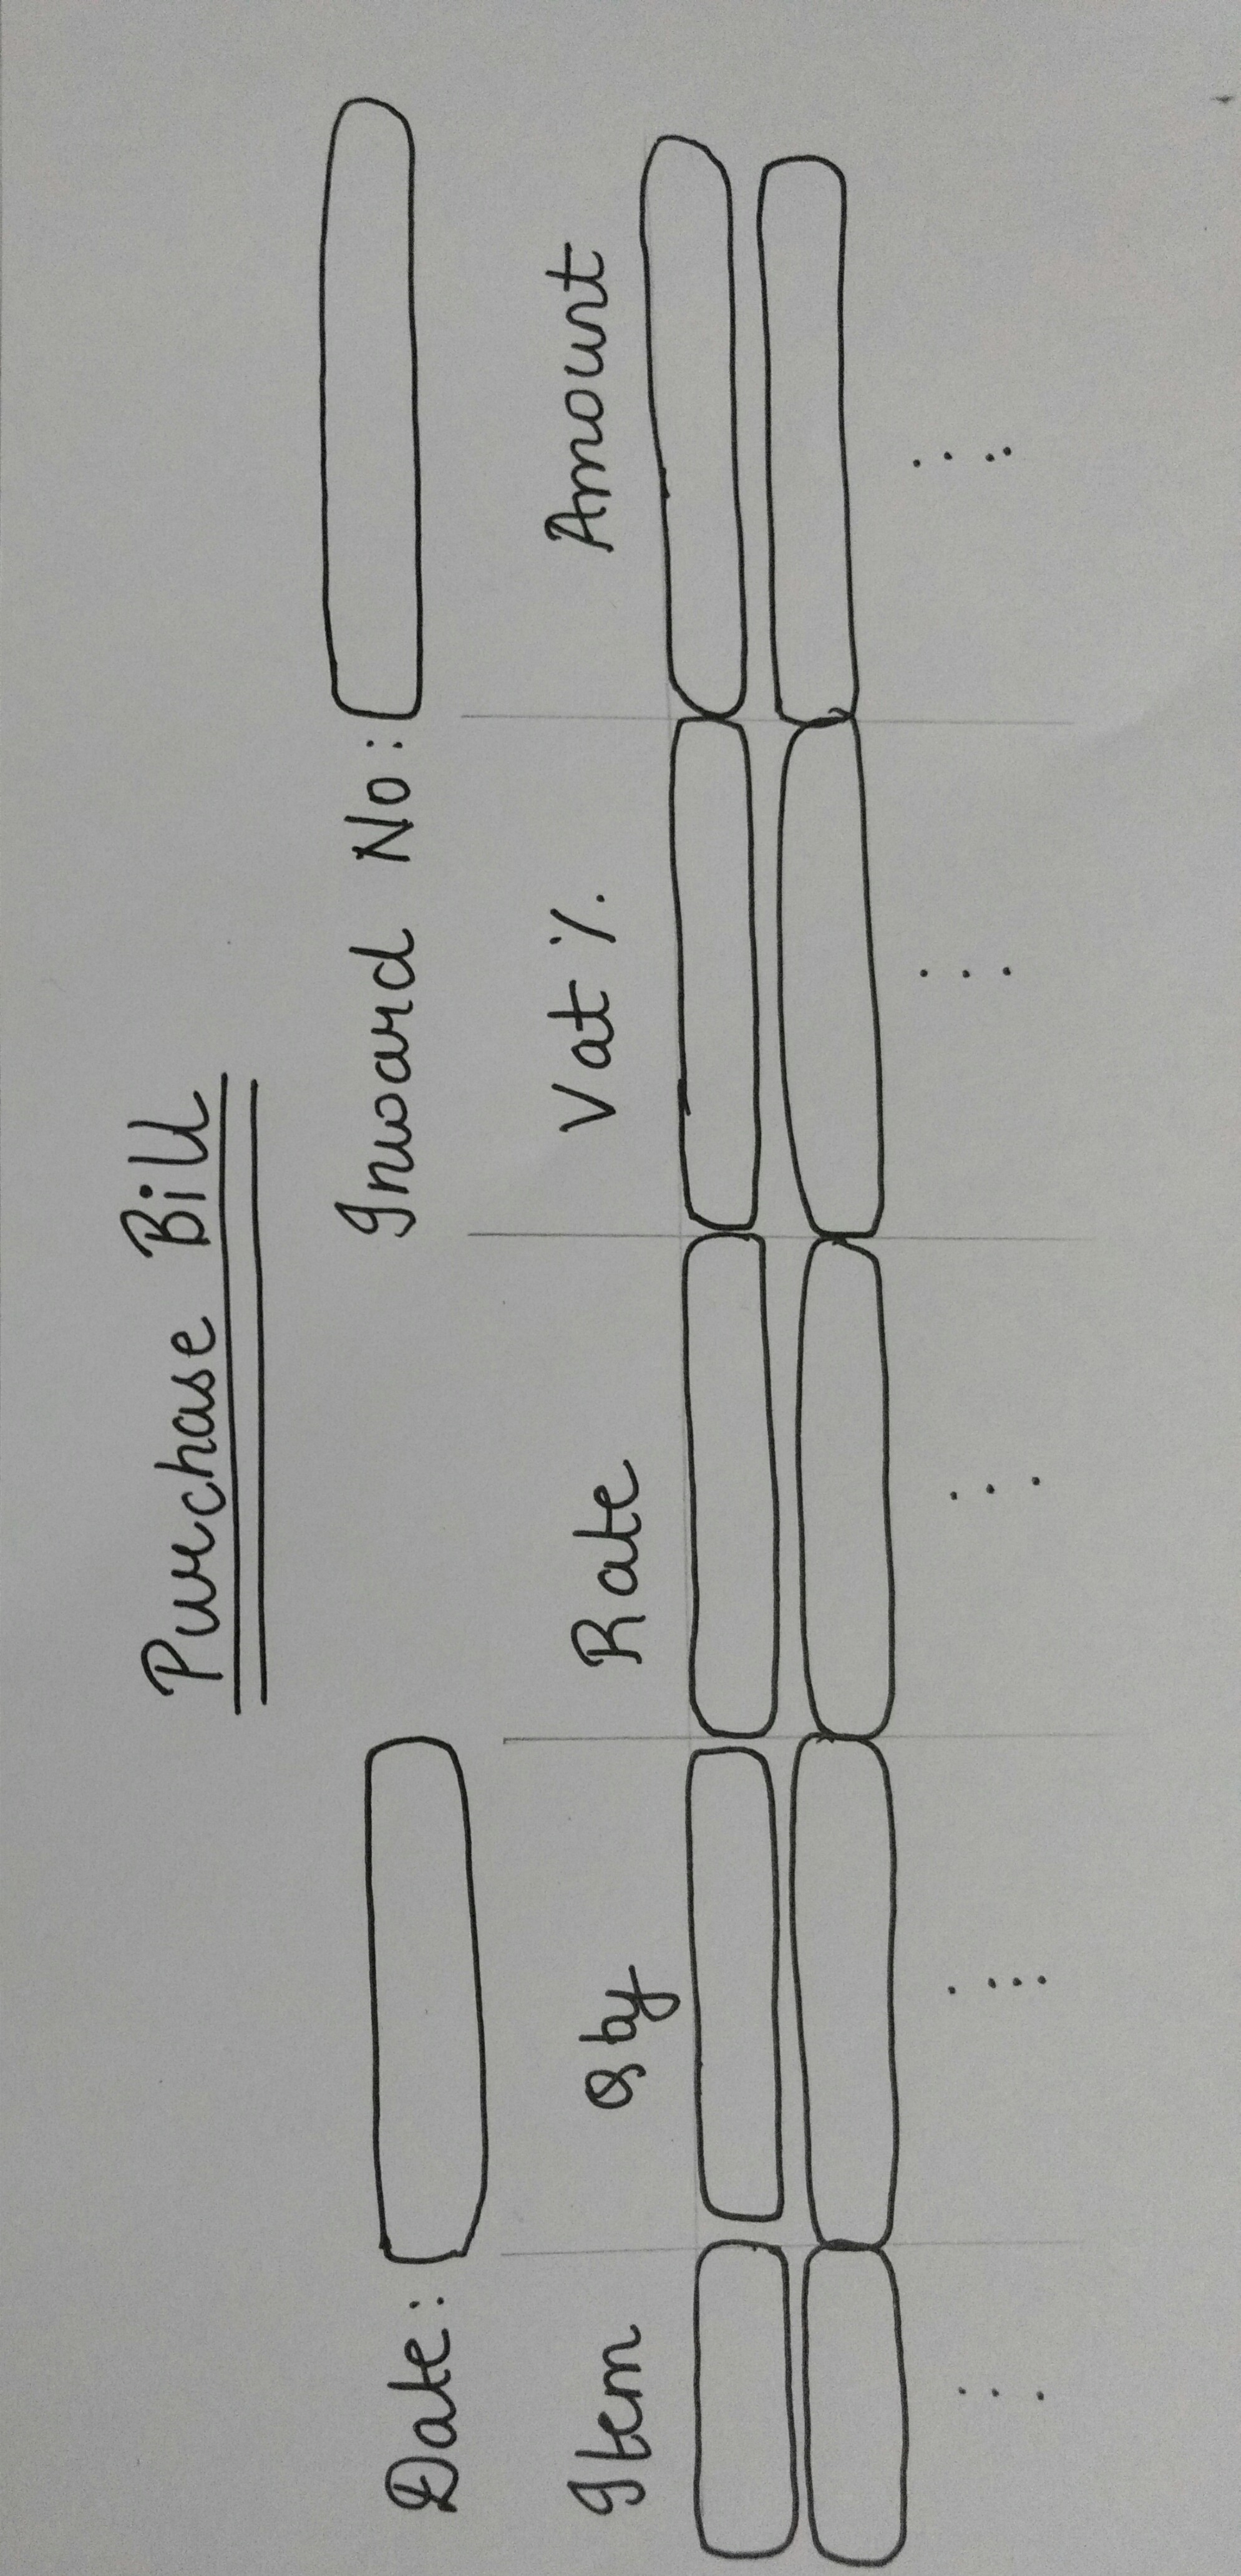 Purchase Bill
Date: Inward No:
Item Qty Rate Vat %. Amount
... .... ... ... ....